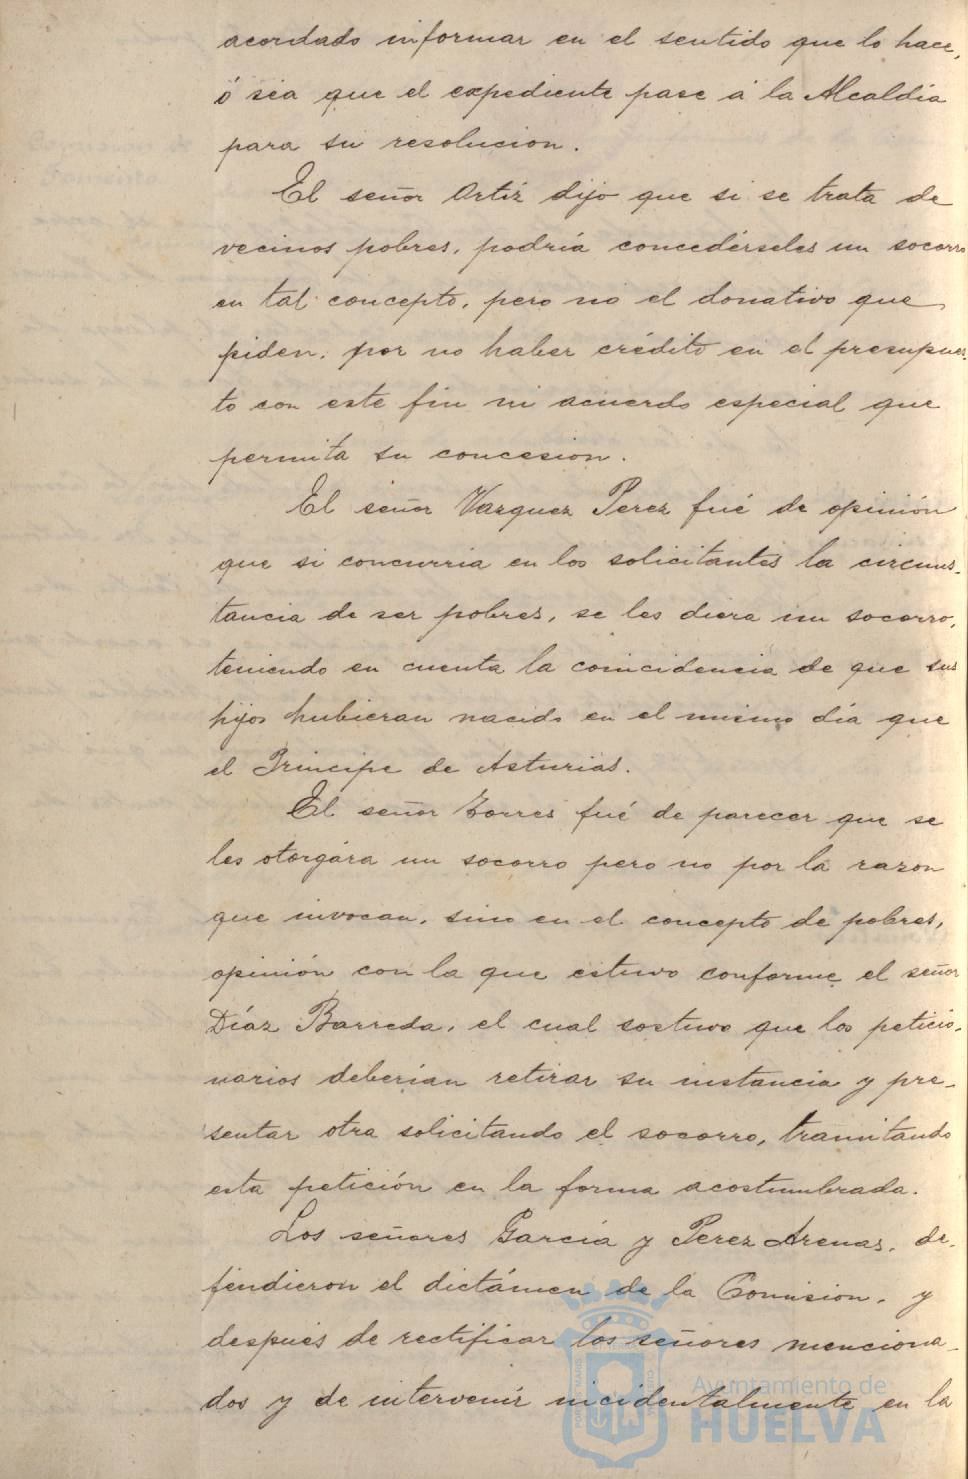 acordado informar en el sentido que lo hace,
ó sea que el expediente pase á la Alcaldía
para su resolucion.
El señor Ortiz dijo que si se trata de
vecinos pobres, podría concedérseles un socorro
en tal concepto, pero no el donativo que
piden, por no haber crédito en el presupues-
to con este fin ni acuerdo especial que
permita su concesion.
El señor Vazquez Perez fué de opinión
que si concurria en los solicitantes la circuns-
tancia de ser pobres, se les diera un socorro,
teniendo en cuenta la coincidencia de que sus
hijos hubieran nacido en el mismo día que
el Principe de Asturias.
El señor Torres fué de parecer que se
les otorgára un socorro pero no por la razon
que invocan, sino en el concepto de pobres,
opinión con la que estuvo conforme el señor
Díaz Barreda, el cual sostuvo que los peticio-
narios deberían retirar su instancia y pre-
sentar otra solicitando el socorro, tramitando
esta petición en la forma acostumbrada.
Los señores García y Perez Arenas, de-
fendieron el dictámen de la Comision, y
después de rectificar los señores menciona-
dos y de intervenir incidentalmente en la
Ayuntamiento de
HUELVA